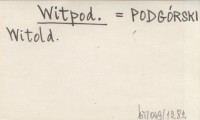 Witpod. = PODGÓRSKI
Witold.